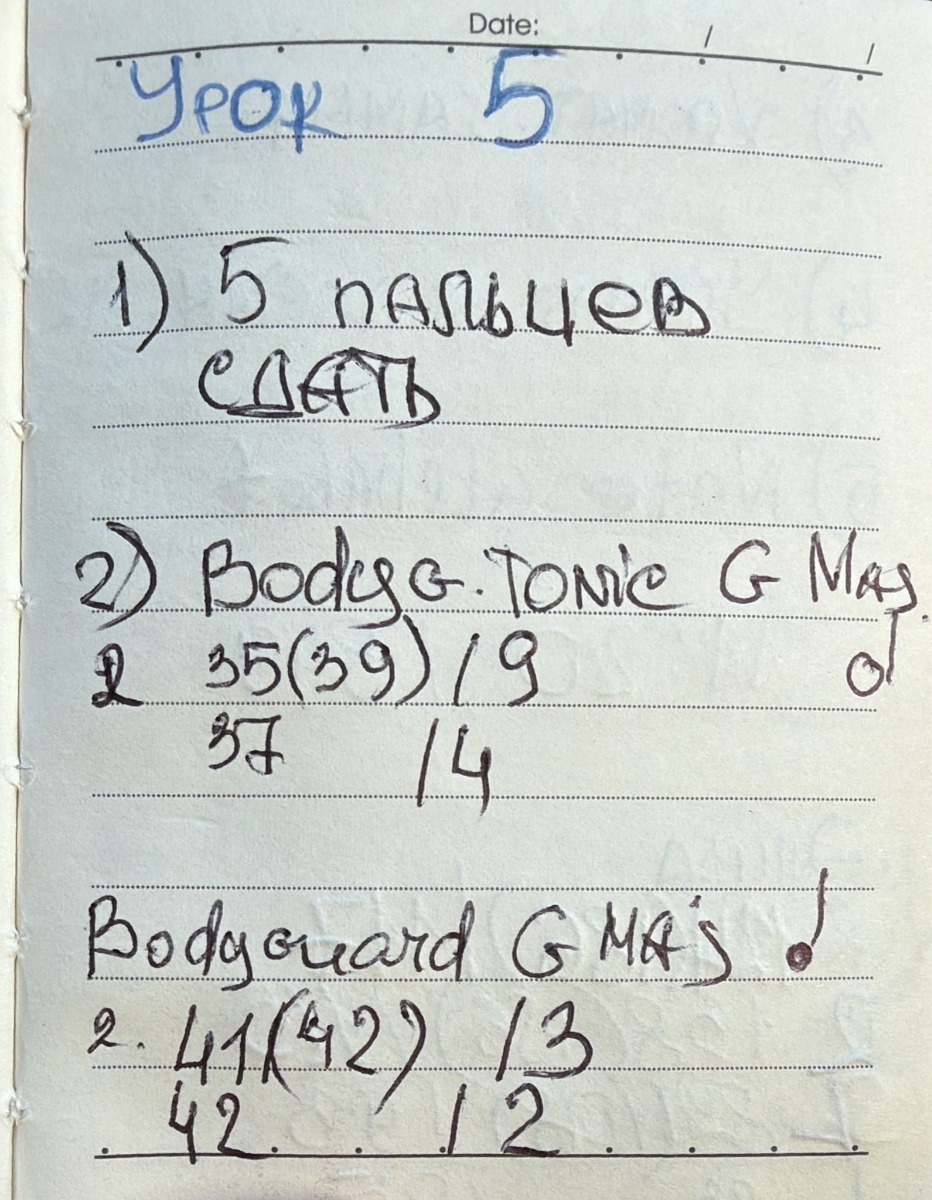 Date: / /
Урок 5
1) 5 пальцев
сдать
2) Bodyg. Tonic G Maj.
2 35(39) / 9
37 / 4
Bodyguard G MAj
2. 41(42) / 3
42 / 2